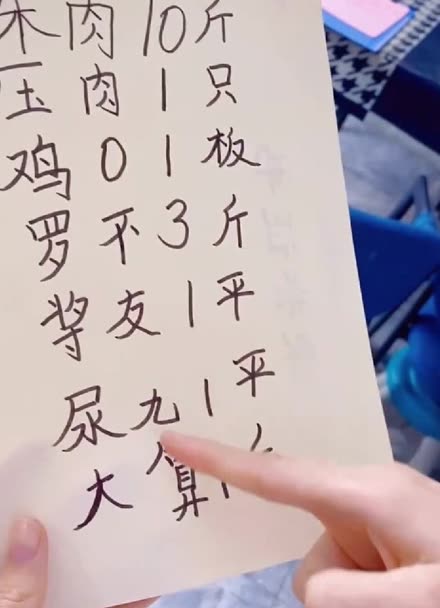 肉10斤
压肉1只
鸡01板
罗不3斤
友1平
尿九1平
大算1